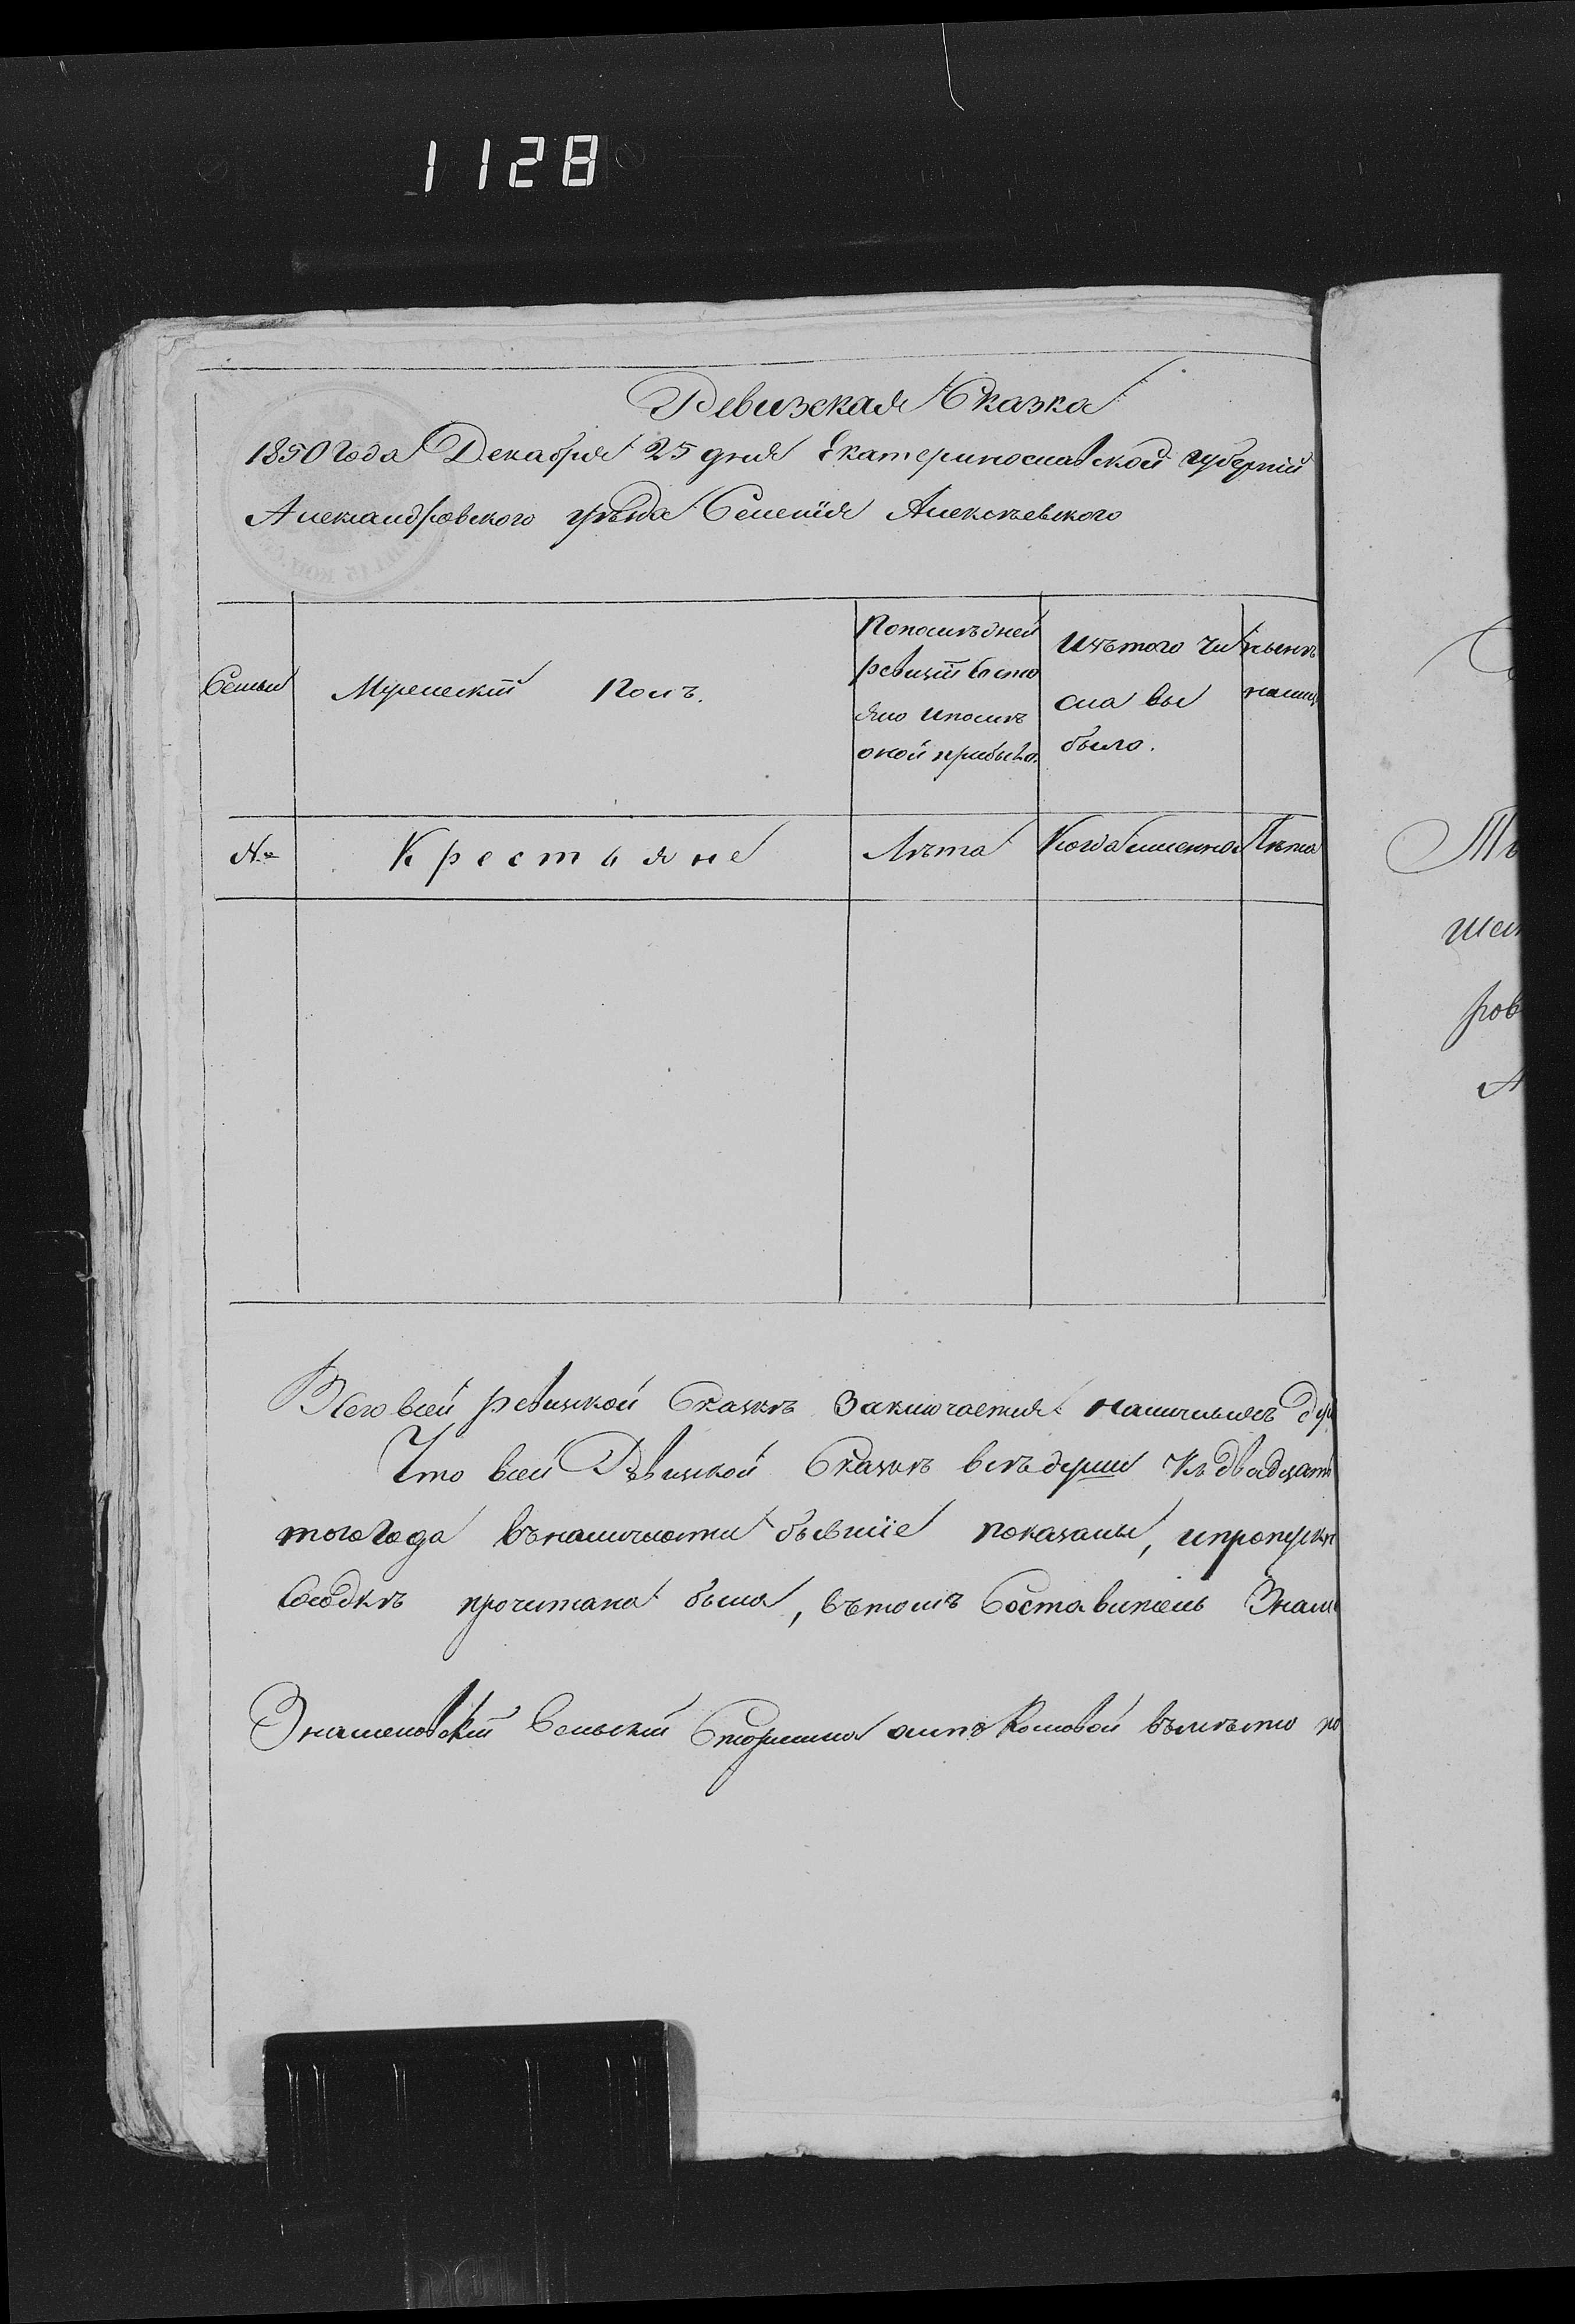 1128
Ревизская Сказка
1850 года Декабря 25 дня Екатеринославской губерніи
Александровского уѣзда Селенія Алексѣевского
Семьи
Мужескій Полъ.
Попослѣдней
ревизіи состо
яло ипослѣ
оной прибыло.
Изътого чи
сла вы
было.
нынѣ
налиц
№
Крестьяне
Лѣта
Когда именно
Лѣта
Всего всей ревизкой Сказкѣ Заключается наличныхъ
Что всей Ревизкой Сказкѣ всѣ души Къ двадцат
того года въналичности бывшіе показаны,
прочитана была, вътомъ Составитель Знам
Знаменовскій Сельскій Старшина вмѣсто
Тъ
ров